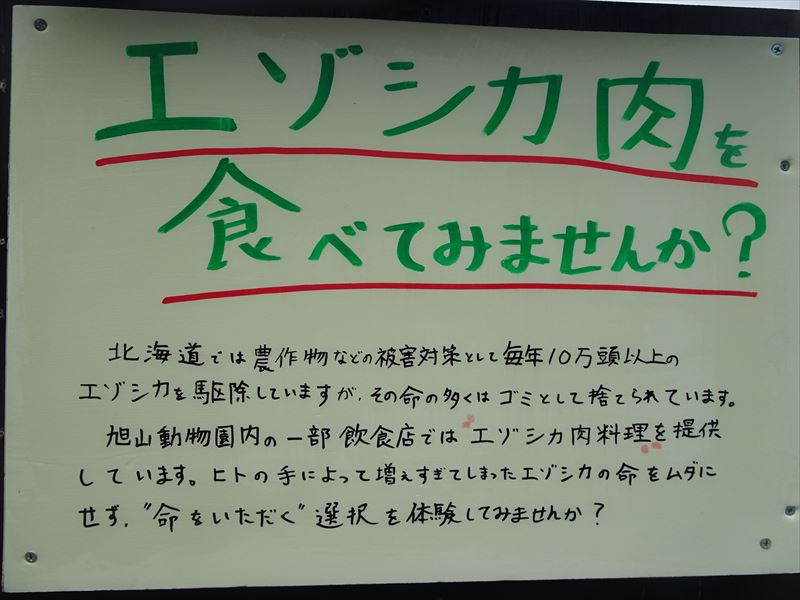 エゾシカ肉を
食べてみませんか?
北海道では農作物などの被害対策として毎年10万頭以上の
エゾシカを駆除していますが、その命の多くはゴミとして捨てられています。
旭山動物園内の一部飲食店ではエゾシカ肉料理を提供
しています。ヒトの手によって増えすぎてしまったエゾシカの命をムダに
せず、"命をいただく"選択を体験してみませんか?